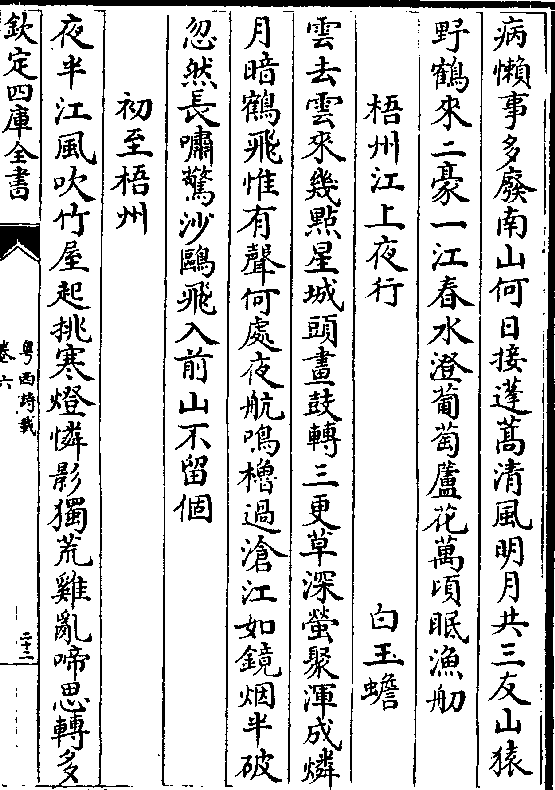 病懶事多廢南山何日接蓬蒿清風明月共三友山猿
野鶴來二豪一江春水澄葡萄蘆花萬頃眠漁舠
梧州江上夜行　白玉蟾
雲去雲來幾點星城頭畫鼓轉三更草深螢聚渾成燐
月暗鶴飛惟有聲何處夜航鳴櫓過滄江如鏡烟半破
忽然長嘯驚沙鷗飛入前山不留個
初至梧州
夜半江風吹竹屋起挑寒燈憐影獨荒雞亂啼思轉多
欽定四庫全書
粤西詩載
卷六
二十二